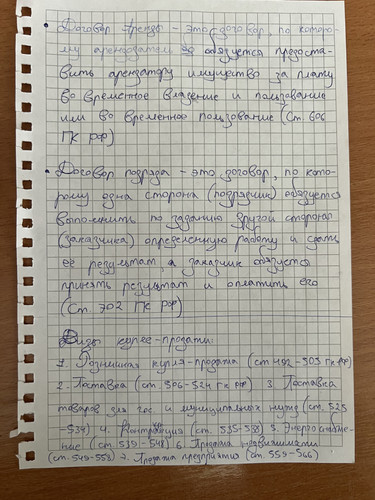 • Договор аренды - это договор, по которо-
му арендодатель обязуется предоста-
вить арендатору имущество за плату
во временное владение и пользование
или во временное пользование (Ст. 606
ГК РФ)
• Договор подряда - это договор, по кото-
рому одна сторона (подрядчик) обязуется
выполнить по заданию другой стороны
(заказчика) определенную работу и сдать
её результат, а заказчик обязуется
принять результат и оплатить его
(Ст. 702 ГК РФ)
Виды купле-продажи:
1. Розничная купля-продажа (ст 492-505 ГК РФ)
2. Поставка (ст. 506-524 ГК РФ) 3. Поставка
товаров для гос и муниципальных нужд (ст. 525
-534) 4. Контрактация (ст. 535-538) 5. Энергоснабже-
ние (ст. 539-548) 6. Продажа недвижимости
(ст. 549-558) 7. Продажа предприятия (ст. 559-566)